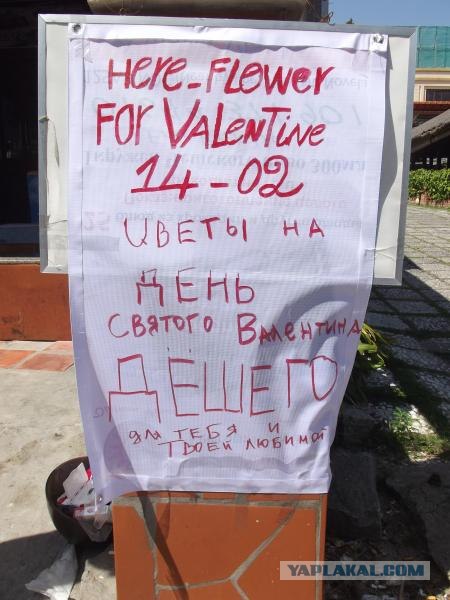 Here-Flower
FOR VALenTine
14-02
ЦВЕТЫ НА
ДЕНЬ
СВЯТОГО Валентина
ДЁШЕГО
для ТЕБЯ И
ТВОЕЙ ЛЮБИМОЙ
YAPLAKAL.COM